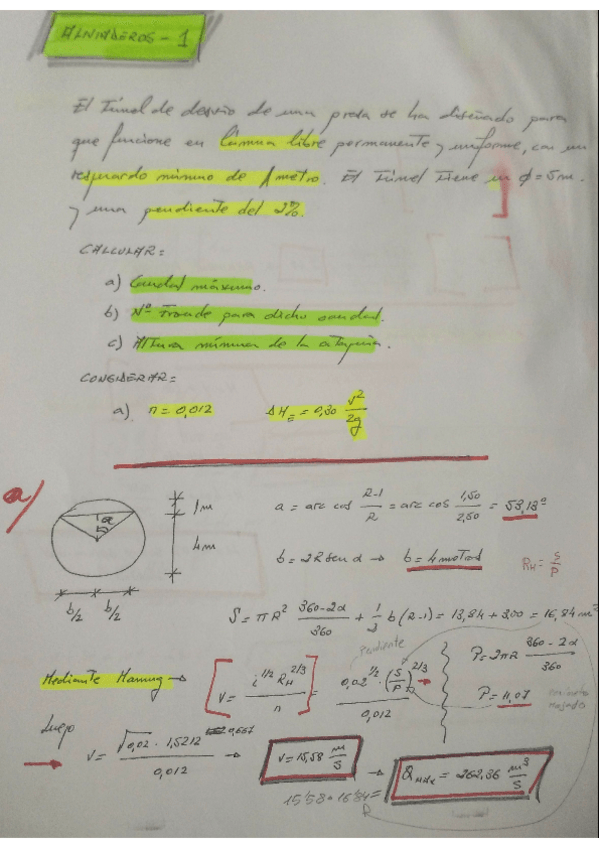 ALIVIADEROS - 1
El túnel de desvío de una presa se ha diseñado para
que funcione en lámina libre permanente y uniforme, con un
resguardo mínimo de 1 metro. El túnel tiene un φ = 5m.
y una pendiente del 2%.
CALCULAR=
a) Caudal máximo.
b) Nº Froude para dicho caudal.
c) Altura mínima de la ataguía.
CONSIDERAR=
a) n = 0,012 ΔH_E = 0,30 v²/2g
a/
α
1m
4m
b/2 b/2
a = arc cos (R-1)/R = arc cos 1,50/2,50 = 53,13º
b = 2R sen α → b = 4 metros
R_H = S/P
S = πR² (360-2α)/360 + 1/2 b (R-1) = 13,84 + 3,00 = 16,84 m²
Pendiente
Mediante Manning → [V = i^1/2 R_H^2/3 / n] = 0,02^1/2 · (S/P)^2/3 / 0,012 →
P = 2πR (360-2α)/360
P = 11,07 perímetro mojado
Luego
→ V = √0,02 · 1,5212^0,667 / 0,012 → V = 15,58 m/s → Q_máx = 262,36 m³/s
15'58 · 16'84 =